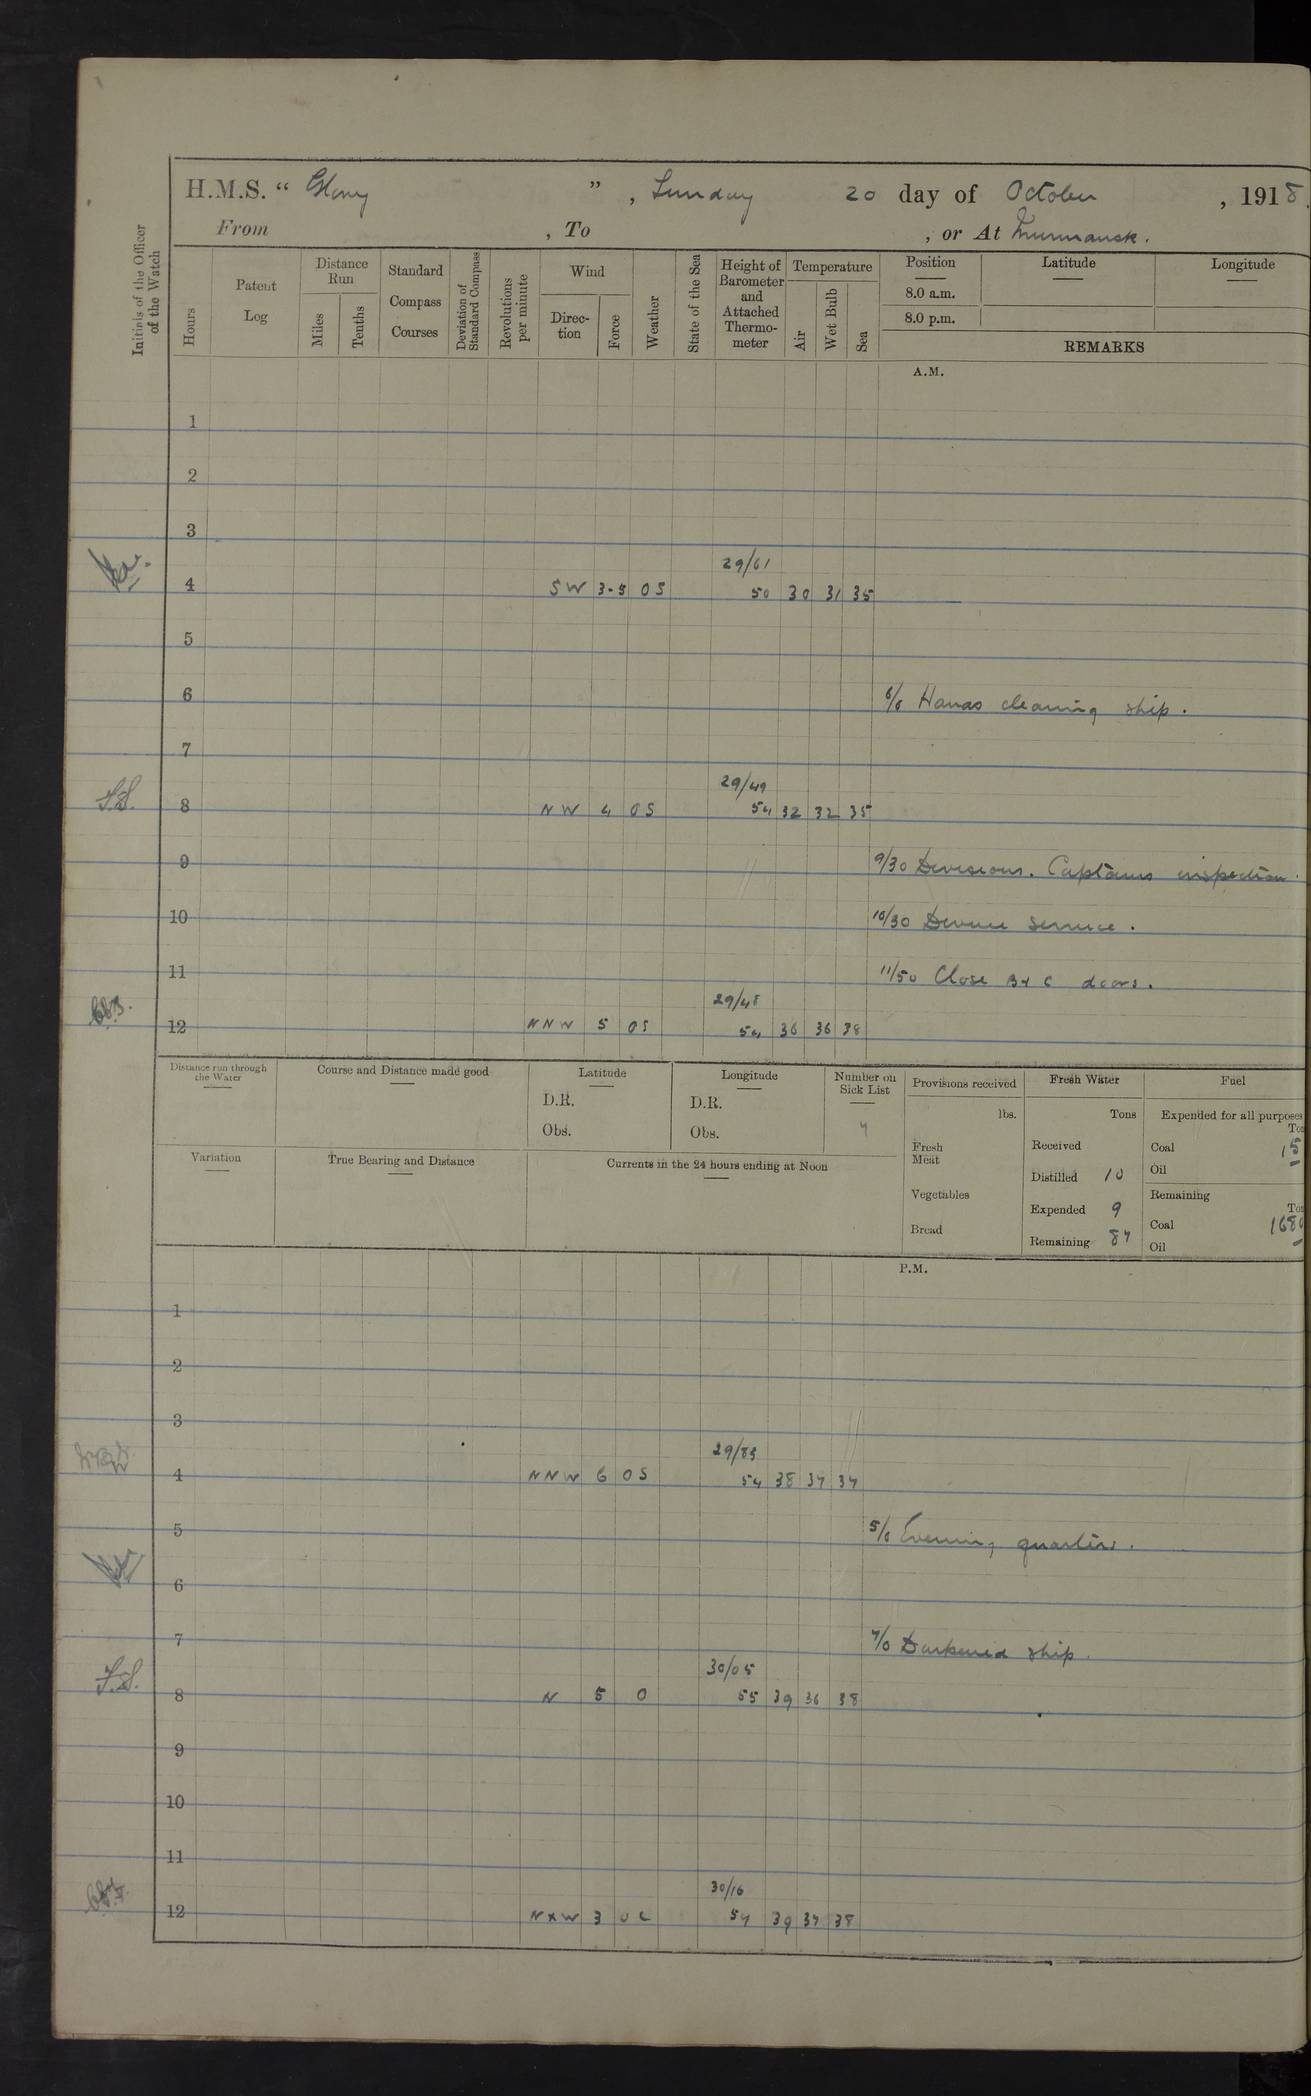 H.M.S. “ Glory ” , Sunday 20 day of October , 1918.
From , To , or At Murmansk.
Initials of the Officer of the Watch
Hours
Patent Log
Distance Run
Miles
Tenths
Standard Compass Courses
Deviation of Standard Compass
Revolutions per minute
Wind
Direc-tion
Force
Weather
State of the Sea
Height of Barometer and Attached Thermo-meter
Temperature
Air
Wet Bulb
Sea
Position Latitude Longitude
8.0 a.m.
8.0 p.m.
REMARKS
A.M.
1
2
3
29/61
4 SW 3-5 OS 50 30 31 35
5
6 6/0 Hands cleaning ship.
7
29/49
F.S. 8 NW 4 OS 54 32 32 35
9 9/30 Divisions. Captains inspection.
10 10/30 Devine Service.
11 11/50 Close B & C doors.
29/48
12 NNW 5 OS 54 36 36 38
Distance run through the Water
Course and Distance made good
Latitude
D.R.
Obs.
Longitude
D.R.
Obs.
Number on Sick List
7
Variation
True Bearing and Distance
Currents in the 24 hours ending at Noon
Provisions received
lbs.
Fresh Meat
Vegetables
Bread
Fresh Water
Tons
Received
Distilled 10
Expended 9
Remaining 87
Fuel
Expended for all purposes
Coal 15
Oil –
Remaining
Coal
Oil –
P.M.
1
2
3
29/83
4 NNW 6 OS 54 38 37 37
5 5/0 Evening quarters.
6
7 7/0 Darkened ship.
30/05
F.S. 8 N 5 O 55 39 36 38
9
10
11
30/16
12 NxW 3 OC 57 39 37 38